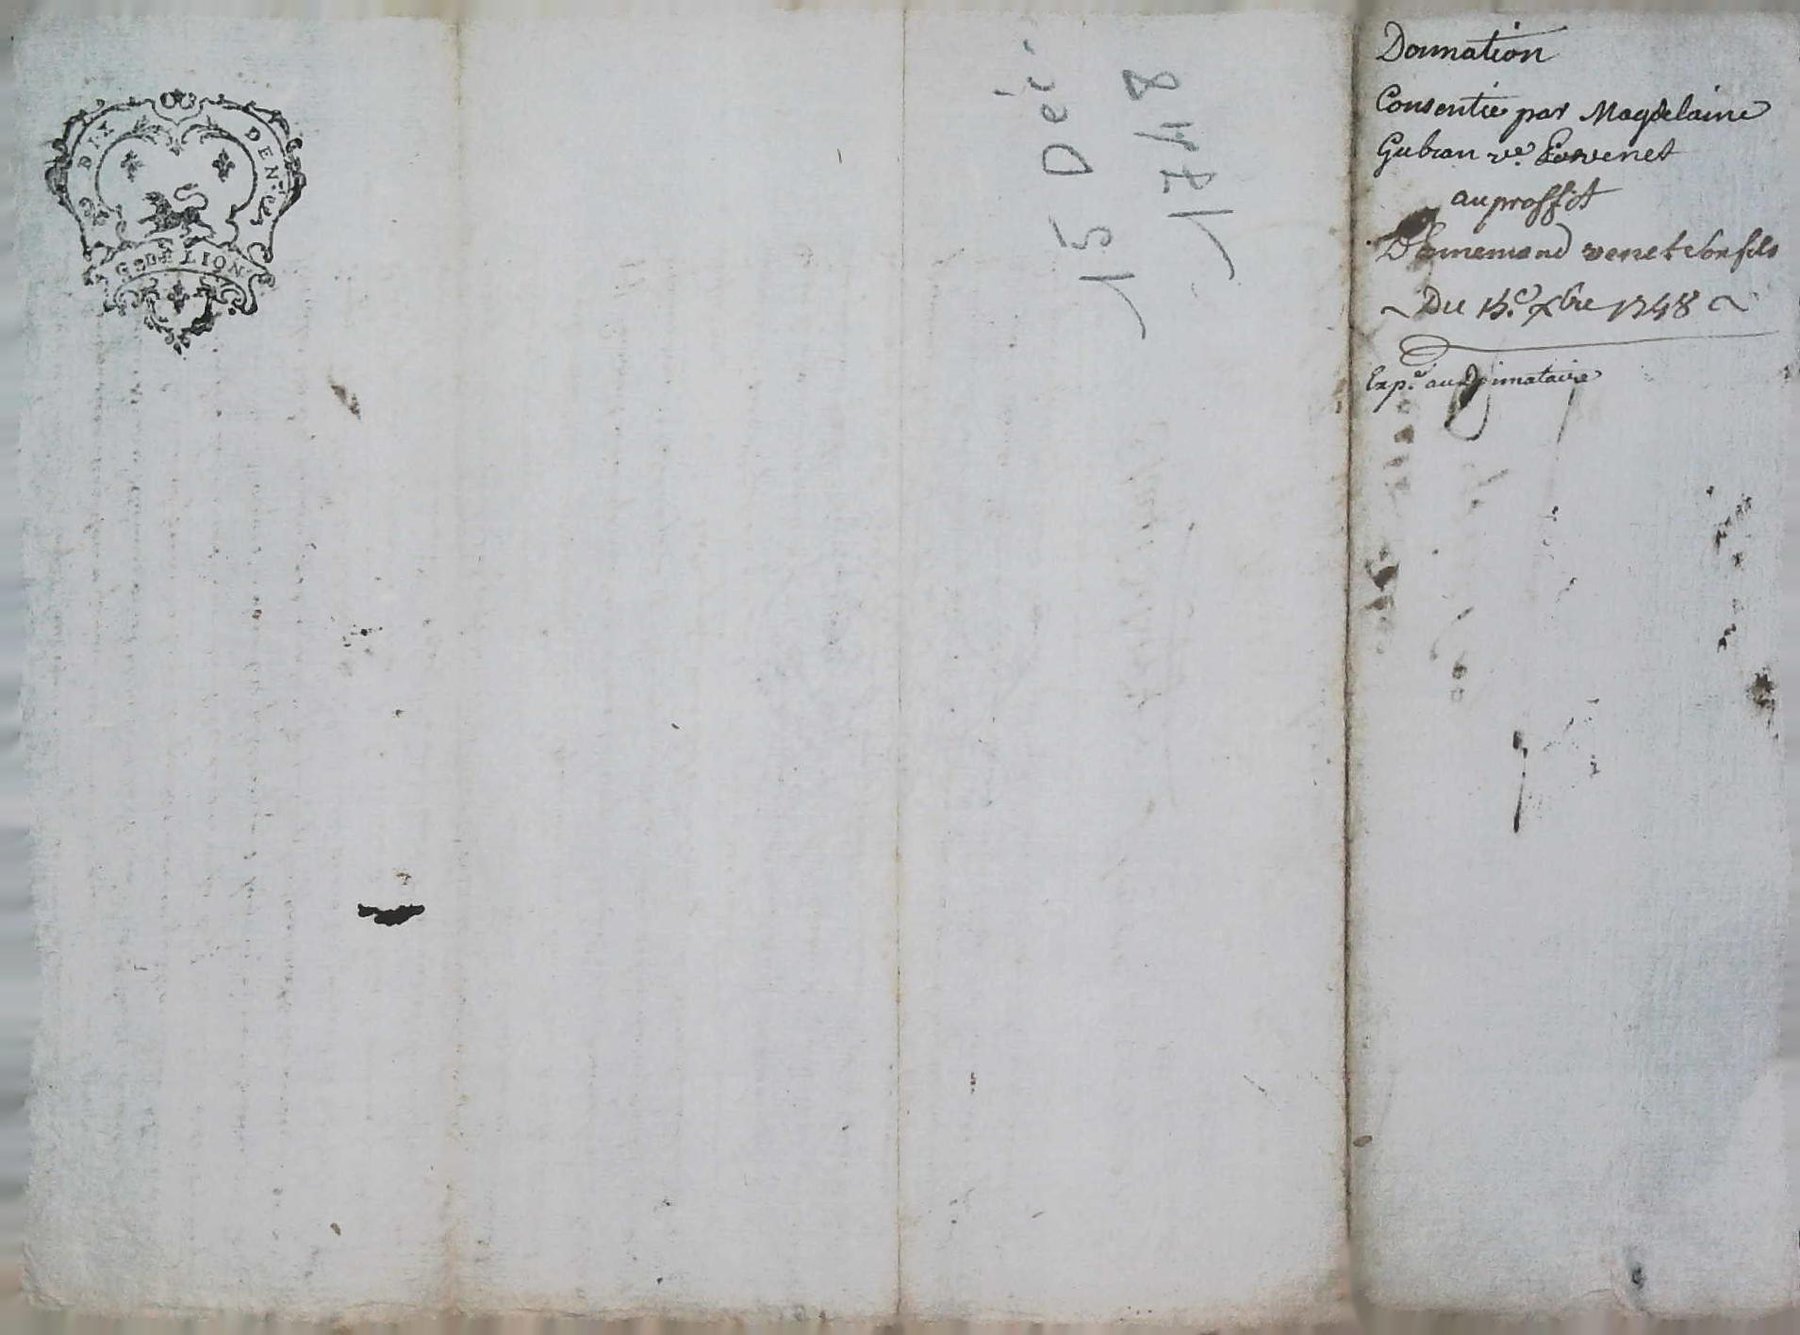 DIX DEN.ers
G. DE LION
15 Déc.
1748
Donnation
Consentie par Magdelaine
Gubian ve. venet
au proffit
D'Ennemond venet son fils
Du 15.e xbre 1748
Exp.é au Donnataire